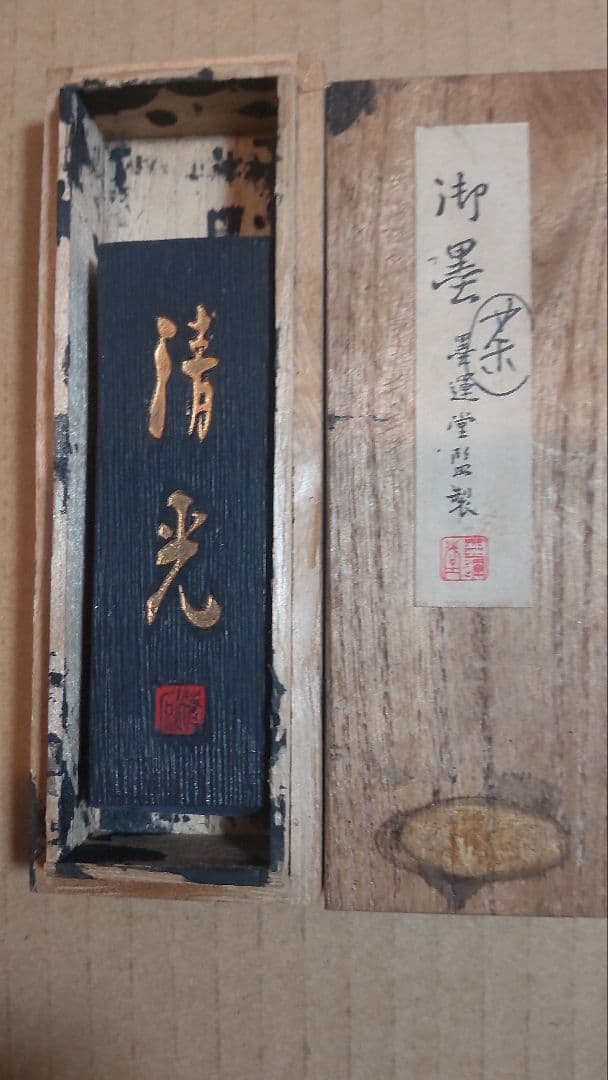 清光
御墨
茶
墨運堂監製